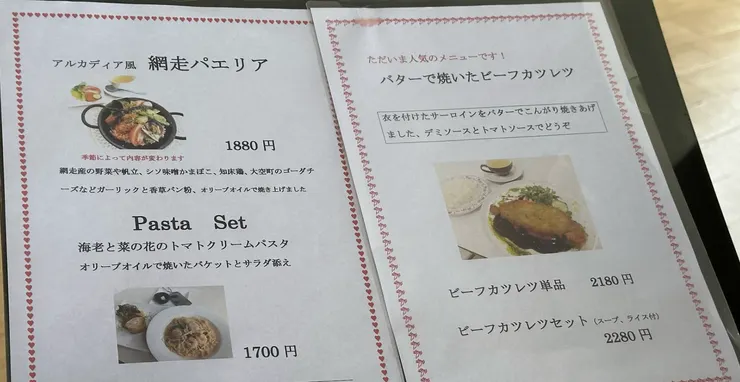 アルカディア風 網走パエリア
1880円
季節によって内容が変わります
網走産の野菜や帆立、シソ味噌かまぼこ、知床鶏、大空町のゴーダチ
ーズなどガーリックと香草パン粉、オリーブオイルで焼き上げました
Pasta Set
海老と菜の花のトマトクリームパスタ
オリーブオイルで焼いたバケットとサラダ添え
1700円
ただいま人気のメニューです!
バターで焼いたビーフカツレツ
衣を付けたサーロインをバターでこんがり焼きあげ
ました、デミソースとトマトソースでどうぞ
ビーフカツレツ単品 2180円
ビーフカツレツセット(スープ、ライス付)
2280円